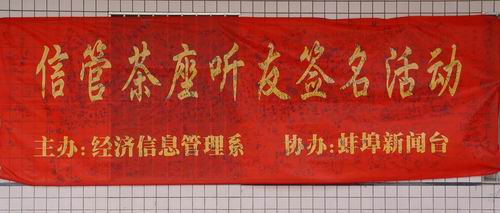 信管茶座听友签名活动
主办:经济信息管理系 协办:蚌埠新闻台